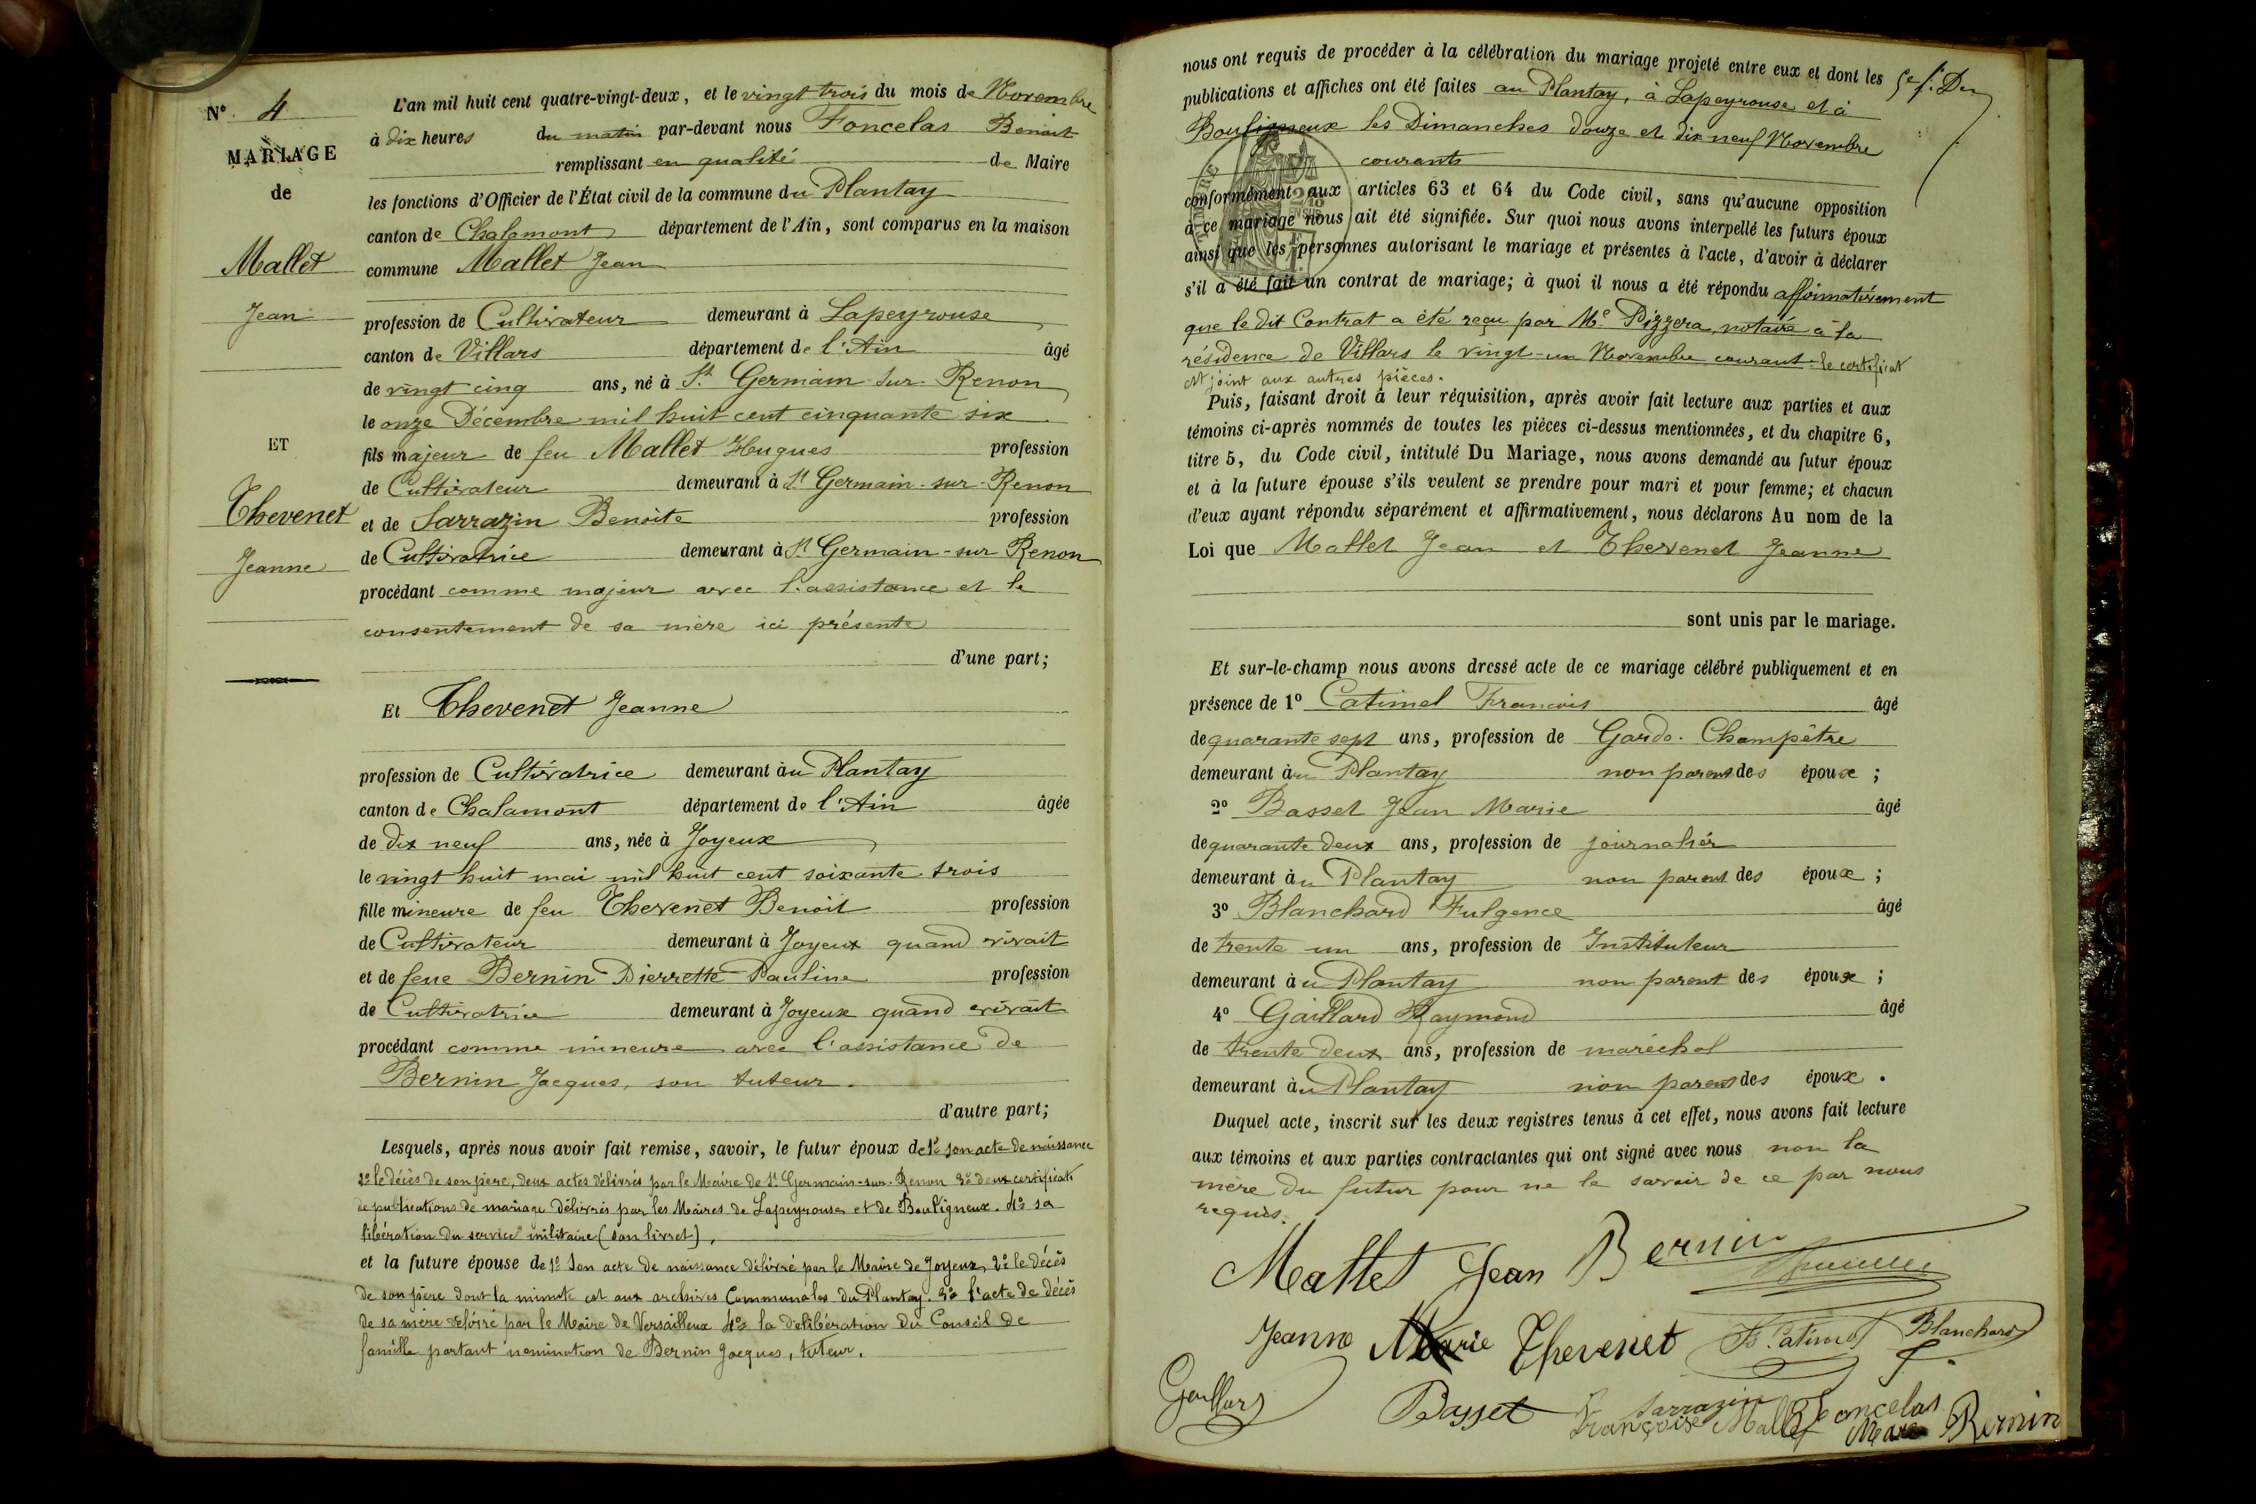 N° 4
MARIAGE
de
Mallet
Jean
ET
Thevenet
Jeanne
L'an mil huit cent quatre-vingt-deux, et le vingt trois du mois de Novembre
à dix heures du matin par-devant nous Foncelas Benoit
remplissant en qualité de Maire
les fonctions d'Officier de l'État civil de la commune du Plantay
canton de Chalamont département de l'Ain, sont comparus en la maison
commune Mallet Jean
profession de Cultivateur demeurant à Lapeyrouse
canton de Villars département de l'Ain âgé
de vingt cinq ans, né à St Germain-sur-Renon
le onze Décembre mil huit cent cinquante six
fils majeur de feu Mallet Hugues profession
de Cultivateur demeurant à St Germain-sur-Renon
et de Sarrazin Benoite profession
de Cultivatrice demeurant à St Germain-sur Renon
procédant comme majeur avec l'assistance et le
consentement de sa mère ici présente
d'une part;
Et Thevenet Jeanne
profession de Cultivatrice demeurant àu Plantay
canton de Chalamont département de l'Ain âgée
de dix neuf ans, née à Joyeux
le vingt huit mai mil huit cent soixante-trois
fille mineure de feu Thevenet Benoit profession
de Cultivateur demeurant à Joyeux quand vivait
et de feue Bernin Pierrette Pauline profession
de Cultivatrice demeurant à Joyeux quand vivait
procédant comme mineure avec l'assistance de
Bernin Jacques, son tuteur.
d'autre part;
Lesquels, après nous avoir fait remise, savoir, le futur époux de 1° son acte de naissance
2° le décès de son père, deux actes délivrés par le Maire de St Germain-sur-Renon 3° deux certificats
de publications de mariage délivrés par les Maires de Lapeyrouse et de Bouligneux. 4° sa
libération du service militaire (son livret),
et la future épouse de 1° Son acte de naissance délivré par le Maire de Joyeux, 2° le décès
de son père dont la minute est aux archives Communales du Plantay. 3° l'acte de décès
de sa mère délivré par le Maire de Versailleux 4° la délibération du Conseil de
famille portant nomination de Bernin Jacques, tuteur.
nous ont requis de procéder à la célébration du mariage projeté entre eux et dont les
publications et affiches ont été faites au Plantay, à Lapeyrouse et à
Bouligneux les Dimanches douze et dix neuf Novembre
courants
conformément aux articles 63 et 64 du Code civil, sans qu'aucune opposition
à ce mariage nous ait été signifiée. Sur quoi nous avons interpellé les futurs époux
ainsi que les personnes autorisant le mariage et présentes à l'acte, d'avoir à déclarer
s'il a été fait un contrat de mariage; à quoi il nous a été répondu affirmativement
que le dit Contrat a été reçu par Me Pizzera, notaire à la
résidence de Villars le vingt-un Novembre courant. le certificat
est joint aux autres pièces.
Puis, faisant droit à leur réquisition, après avoir fait lecture aux parties et aux
témoins ci-après nommés de toutes les pièces ci-dessus mentionnées, et du chapitre 6,
titre 5, du Code civil, intitulé Du Mariage, nous avons demandé au futur époux
et à la future épouse s'ils veulent se prendre pour mari et pour femme; et chacun
d'eux ayant répondu séparément et affirmativement, nous déclarons Au nom de la
Loi que Mallet Jean et Thevenet Jeanne
sont unis par le mariage.
Et sur-le-champ nous avons dressé acte de ce mariage célébré publiquement et en
présence de 1° Catimel Francois âgé
de quarante sept ans, profession de Garde-Champêtre
demeurant àu Plantay non parent des époux ;
2° Basset Jean Marie âgé
de quarante deux ans, profession de journalier
demeurant àu Plantay non parent des époux ;
3° Blanchard Fulgence âgé
de trente un ans, profession de Instituteur
demeurant àu Plantay non parent des époux ;
4° Gaillard Raymond âgé
de trente deux ans, profession de maréchal
demeurant àu Plantay non parent des époux .
Duquel acte, inscrit sur les deux registres tenus à cet effet, nous avons fait lecture
aux témoins et aux parties contractantes qui ont signé avec nous non la
mère du futur pour ne le savoir de ce par nous
requis.
Mallet Jean Bernin
Jeanne Marie Thevenet F. Catimel Blanchard F.
Gaillard Basset Sarrazin Foncelas
Françoise Mallet Maire Bernin